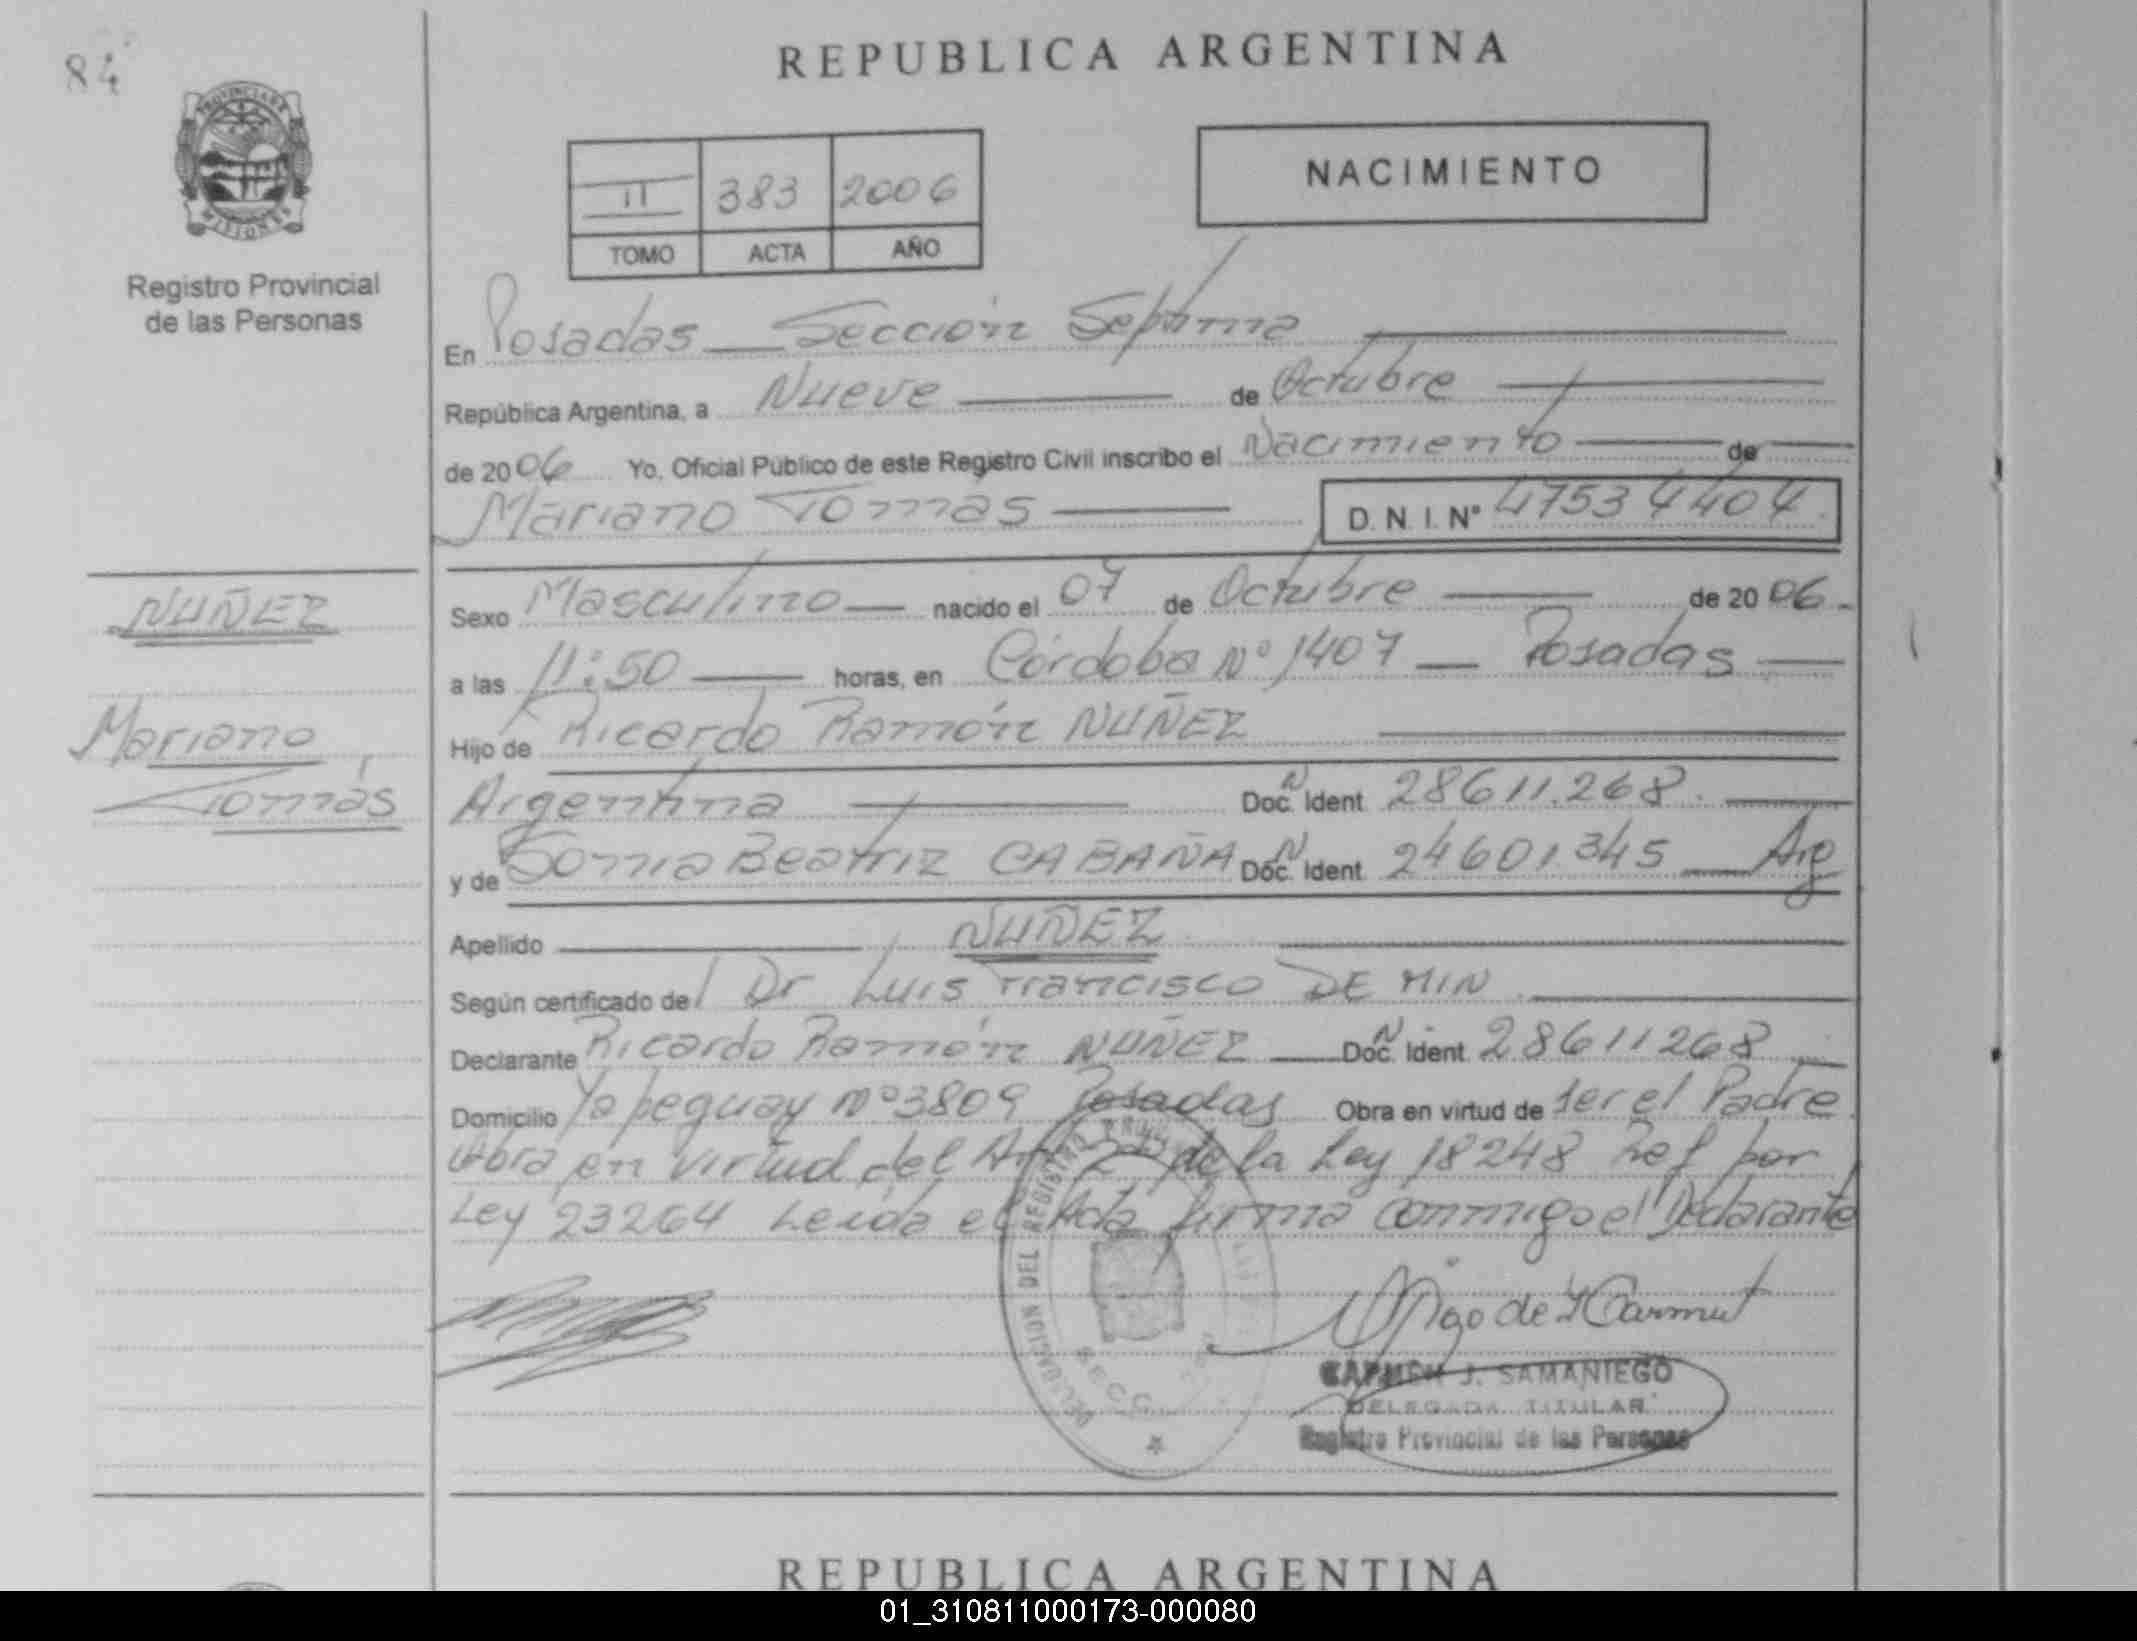 84
REPUBLICA ARGENTINA
PROVINCIA DE
MISIONES
Registro Provincial
de las Personas
II 383 2006
TOMO ACTA AÑO
NACIMIENTO
En Posadas Sección Septima
República Argentina, a Nueve de Octubre
de 2006 Yo, Oficial Público de este Registro Civil inscribo el Nacimiento de
Mariano Tomas D.N.I. Nº 47534404
NUÑEZ
Mariano
Tomás
Sexo Masculino nacido el 07 de Octubre de 2006
a las 11:50 horas, en Córdoba Nº 1407 Posadas
Hijo de Ricardo Ramón NUÑEZ
Argentina Doc. Ident N 28611.268
y de Sonia Beatriz CABAÑA Doc. Ident N 24601.345 Arg
Apellido NUÑEZ
Según certificado del Dr Luis Francisco DE MIN
Declarante Ricardo Ramón NUÑEZ Doc. Ident N 28611268
Domicilio Yapeguay nº3809 Posadas Obra en virtud de ser el Padre
Obra en virtud del Art 2º de la Ley 18248 Ref por
Ley 23264 Leida el Acta firma conmigo el Declarante
DELEGACION DEL REGISTRO
SECC
CARMEN J. SAMANIEGO
DELEGADA TITULAR
Registro Provincial de las Personas
REPUBLICA ARGENTINA
01_310811000173-000080